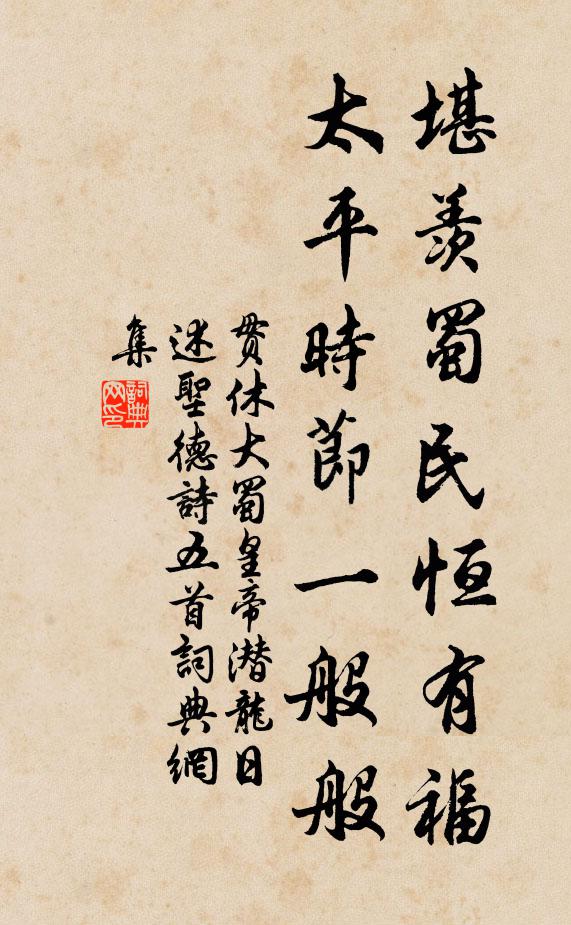 堪羨蜀民恒有福
太平時節一般般
貫休大蜀皇帝潜龍日
述聖德詩五首詞典網
集
詞典網印